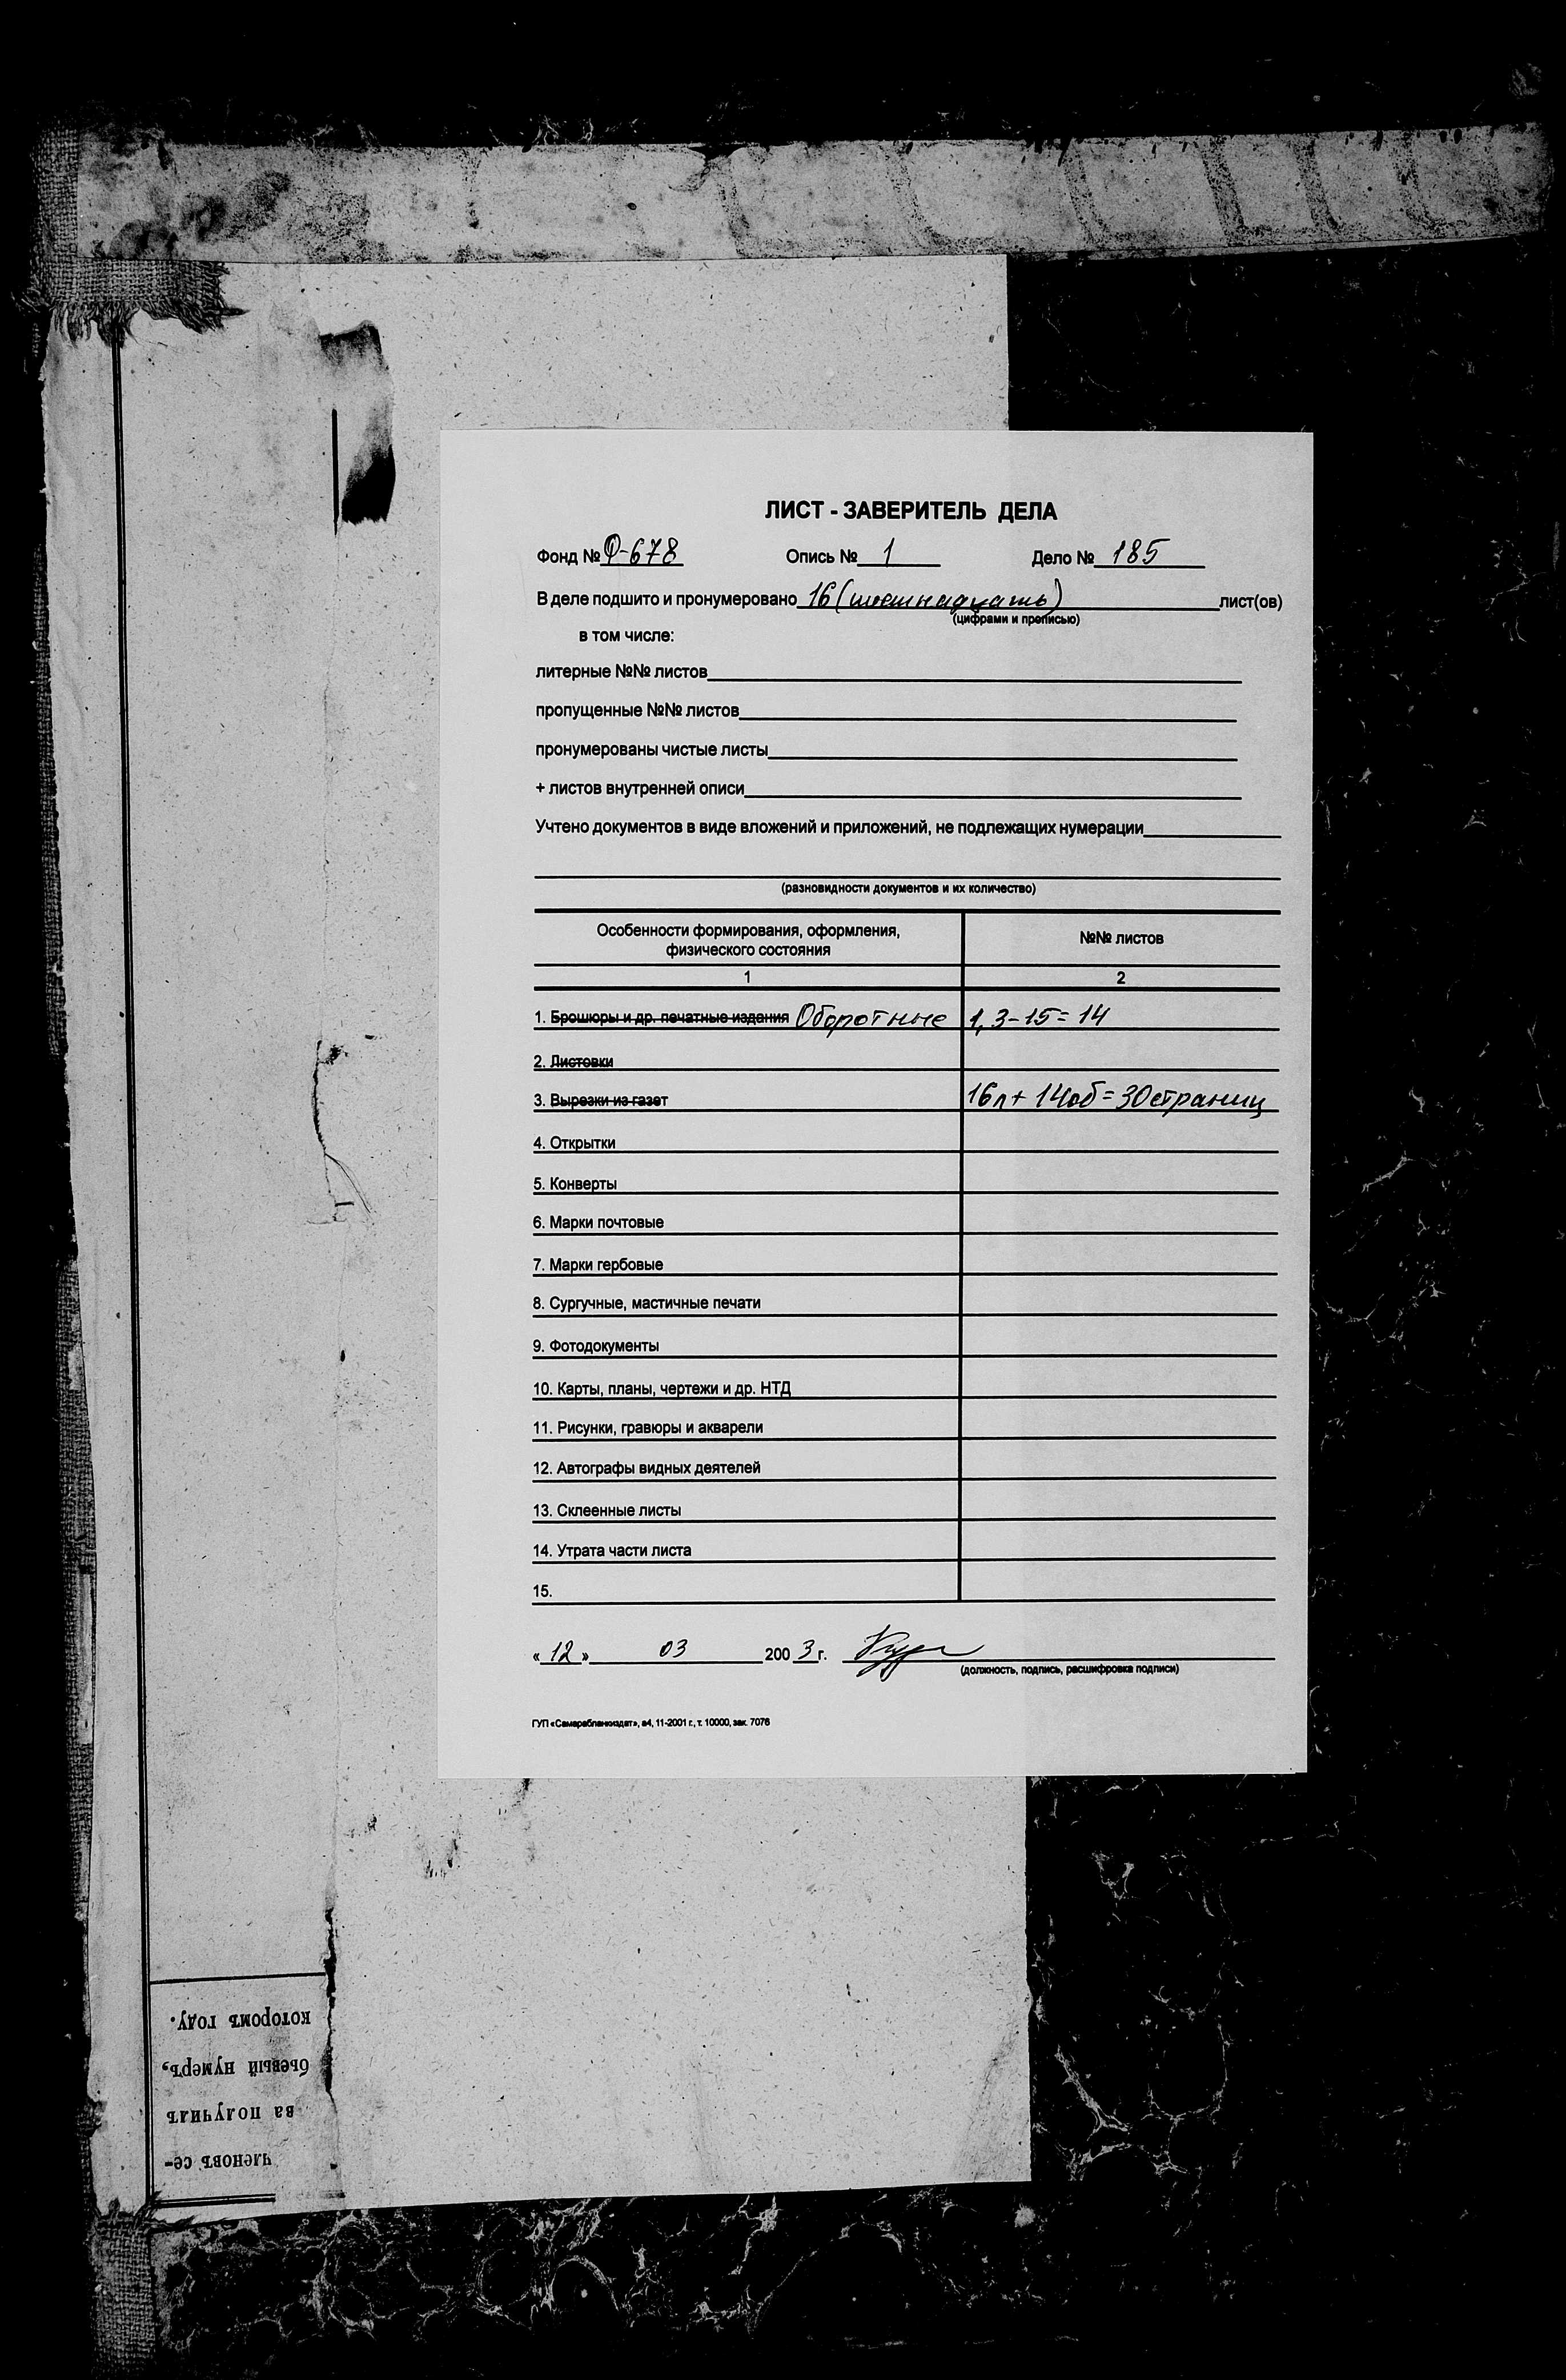 ЛИСТ - ЗАВЕРИТЕЛЬ ДЕЛА
Фонд № Ф-678 Опись № 1 Дело № 185
В деле подшито и пронумеровано 16 (шестнадцать) лист(ов)
(цифрами и прописью)
в том числе:
литерные №№ листов
пропущенные №№ листов
пронумерованы чистые листы
+ листов внутренней описи
Учтено документов в виде вложений и приложений, не подлежащих нумерации
(разновидности документов и их количество)
Особенности формирования, оформления, №№ листов
физического состояния
1 2
1. Брошюры и др. печатные издания Оборотные 1, 3-15 = 14
2. Листовки
3. Вырезки из газет 16л + 14об = 30 страниц
4. Открытки
5. Конверты
6. Марки почтовые
7. Марки гербовые
8. Сургучные, мастичные печати
9. Фотодокументы
10. Карты, планы, чертежи и др. НТД
11. Рисунки, гравюры и акварели
12. Автографы видных деятелей
13. Склеенные листы
14. Утрата части листа
15.
« 12 » 03 2003 г.
(должность, подпись, расшифровка подписи)
ГУП «Самарабланкиздат», а4, 11-2001 г., т. 10000, зак. 7076
членовъ се-
ва получилъ
бьевый нумеръ,
которомъ году.